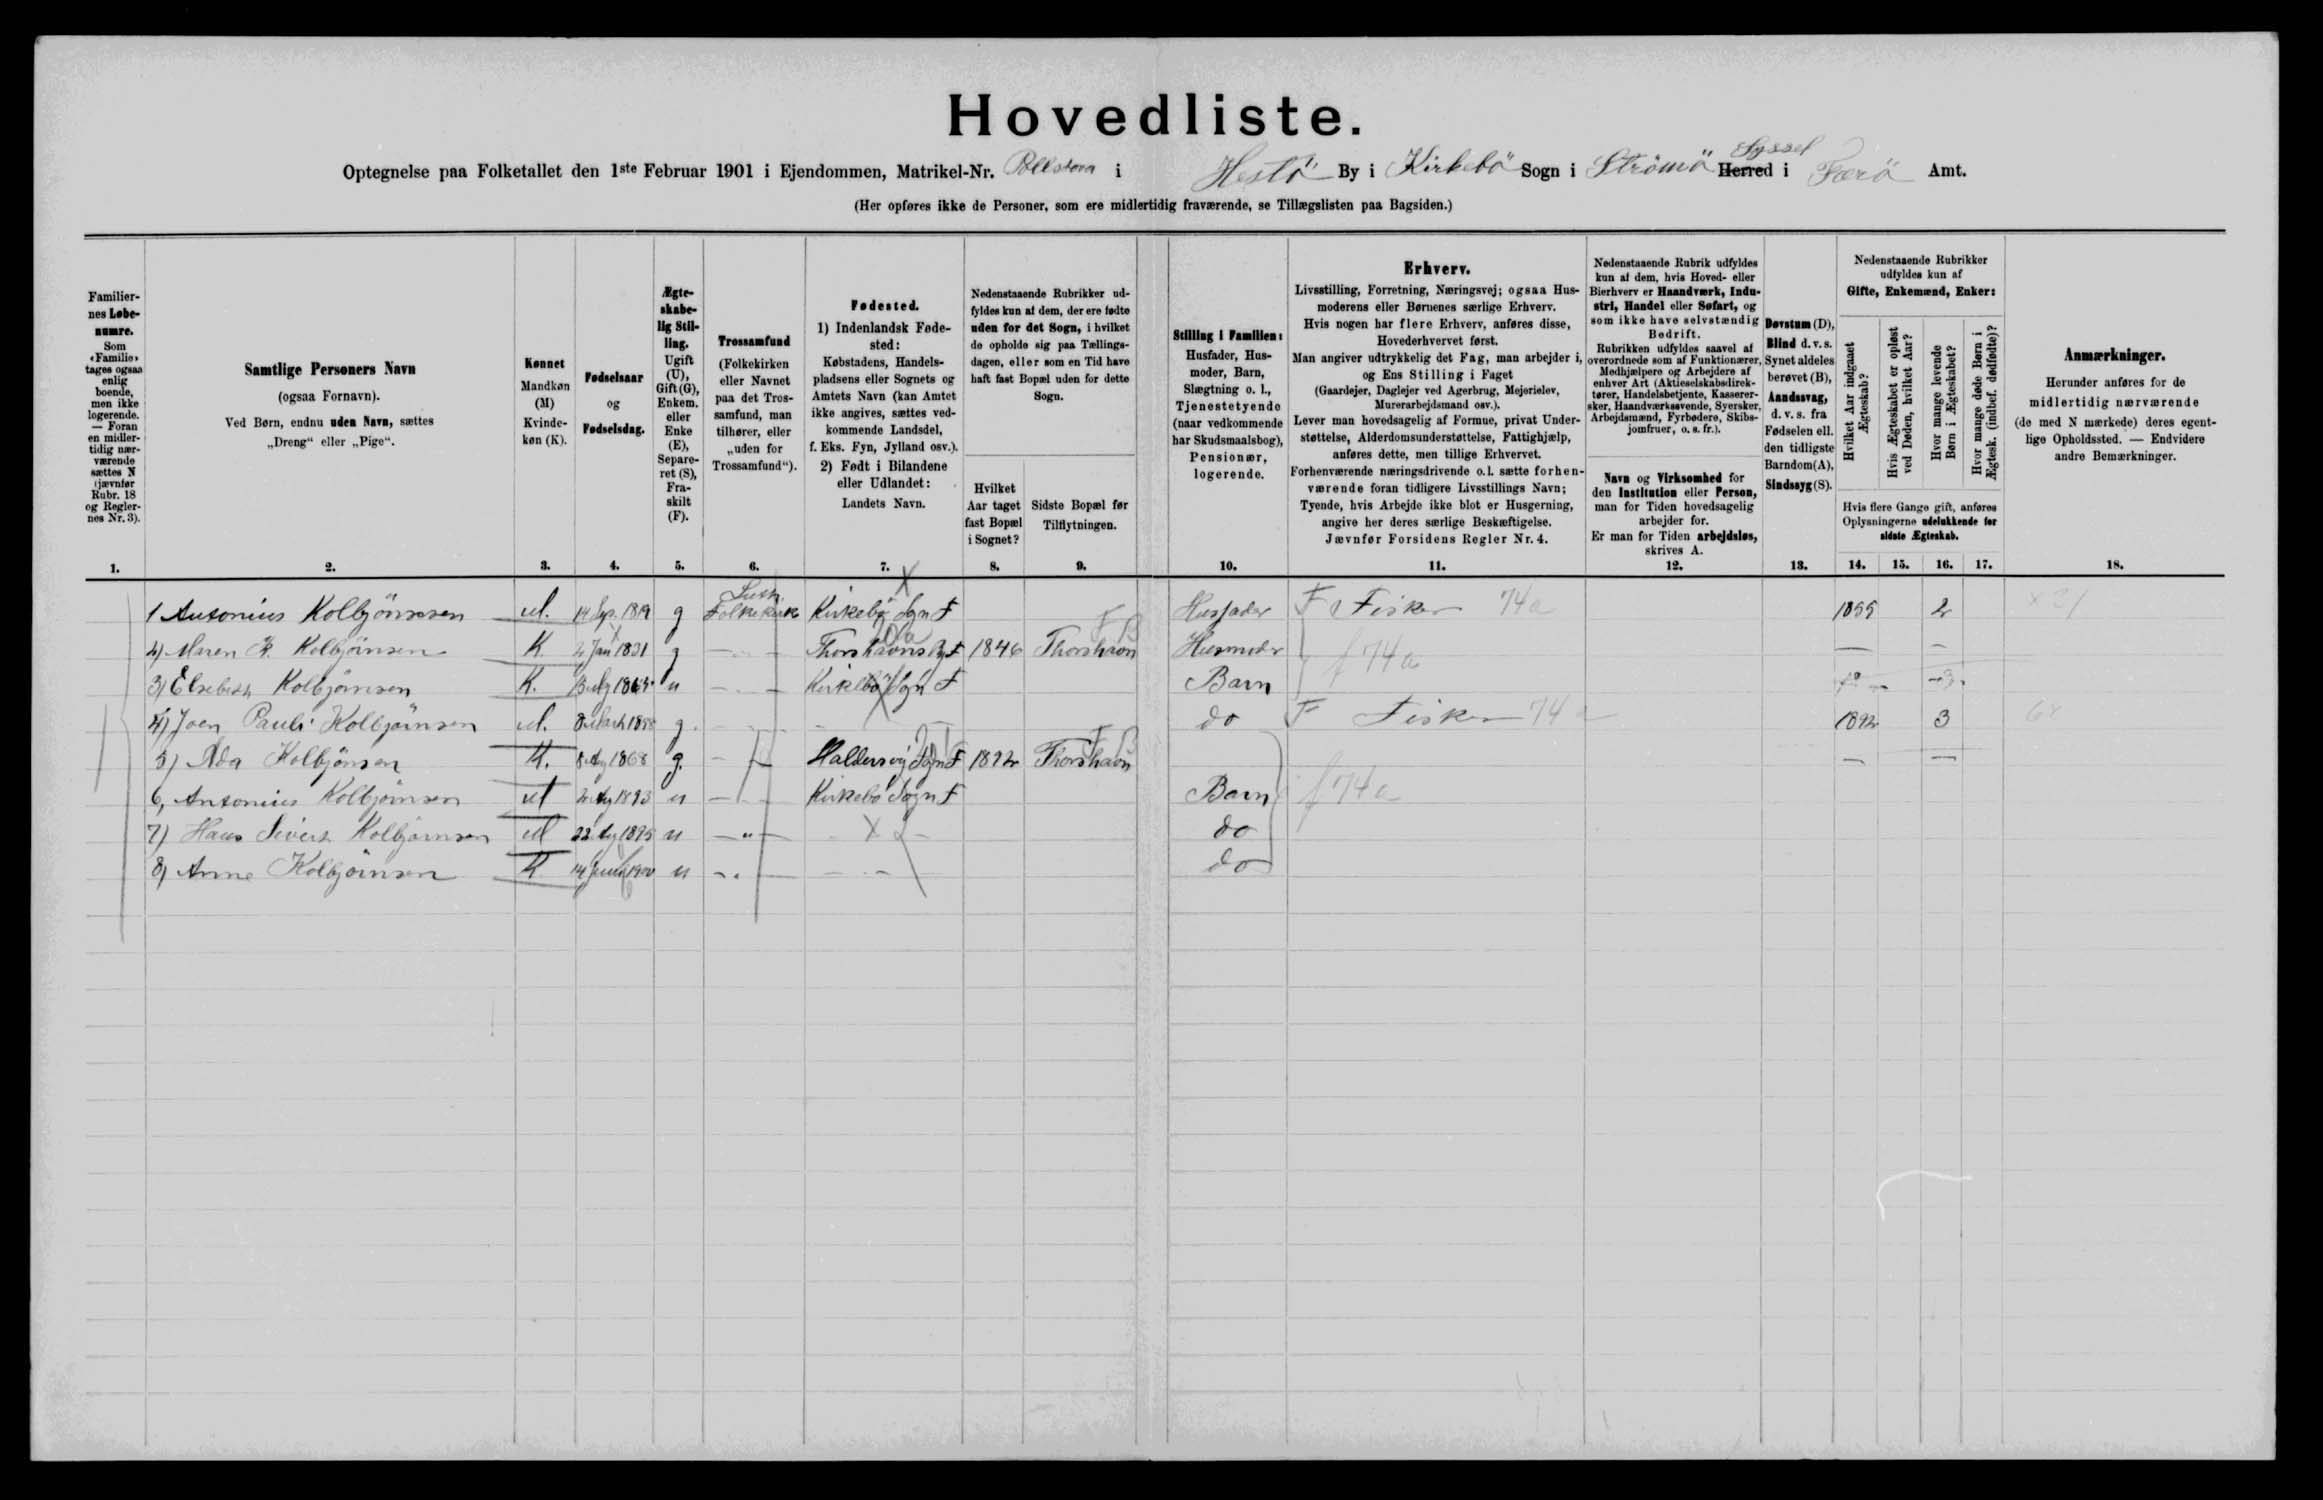 Hovedliste.
Optegnelse paa Folketallet den 1ste Februar 1901 i Ejendommen, Matrikel-Nr. Pollstova i Hestö By i Kirkebö Sogn i Strömö Herred Syssel i Færö Amt.
(Her opføres ikke de Personer, som ere midlertidig fraværende, se Tillægslisten paa Bagsiden.)
Familiernes Løbenumre.
Som «Familie» tages ogsaa enlig boende, men ikke logerende. — Foran en midlertidig nærværende sættes N (jævnfør Rubr. 18 og Reglernes Nr. 3).
Samtlige Personers Navn
(ogsaa Fornavn).
Ved Børn, endnu uden Navn, sættes
„Dreng“ eller „Pige“.
Kønnet
Mandkøn (M)
Kvindekøn (K).
Fødselsaar
og
Fødselsdag.
Ægteskabelig Stilling.
Ugift (U), Gift (G), Enkem. eller Enke (E), Separeret (S), Fraskilt (F).
Trossamfund
(Folkekirken eller Navnet paa det Trossamfund, man tilhører, eller „uden for Trossamfund“).
Fødested.
1) Indenlandsk Fødested:
Købstadens, Handelspladsens eller Sognets og Amtets Navn (kan Amtet ikke angives, sættes vedkommende Landsdel, f. Eks. Fyn, Jylland osv.).
2) Født i Bilandene eller Udlandet:
Landets Navn.
Nedenstaaende Rubrikker udfyldes kun af dem, der ere fødte uden for det Sogn, i hvilket de opholde sig paa Tællingsdagen, eller som en Tid have haft fast Bopæl uden for dette Sogn.
Hvilket Aar taget fast Bopæl i Sognet?
Sidste Bopæl før Tilflytningen.
Stilling i Familien:
Husfader, Husmoder, Barn, Slægtning o. l., Tjenestetyende (naar vedkommende har Skudsmaalsbog), Pensionær, logerende.
Erhverv.
Livsstilling, Forretning, Næringsvej; ogsaa Husmoderens eller Børnenes særlige Erhverv.
Hvis nogen har flere Erhverv, anføres disse, Hovederhvervet først.
Man angiver udtrykkelig det Fag, man arbejder i, og Ens Stilling i Faget
(Gaardejer, Daglejer ved Agerbrug, Mejerielev, Murerarbejdsmand osv.).
Lever man hovedsagelig af Formue, privat Understøttelse, Alderdomsunderstøttelse, Fattighjælp, anføres dette, men tillige Erhvervet.
Forhenværende næringsdrivende o.l. sætte forhenværende foran tidligere Livsstillings Navn;
Tyende, hvis Arbejde ikke blot er Husgerning, angive her deres særlige Beskæftigelse.
Jævnfør Forsidens Regler Nr. 4.
Nedenstaaende Rubrik udfyldes kun af dem, hvis Hoved- eller Bierhverv er Haandværk, Industri, Handel eller Søfart, og som ikke have selvstændig Bedrift.
Rubrikken udfyldes saavel af overordnede som af Funktionærer, Medhjælpere og Arbejdere af enhver Art (Aktieselskabsdirektører, Handelsbetjente, Kasserersker, Haandværkssvende, Syersker, Arbejdsmænd, Fyrbødere, Skibsjomfruer, o. s. fr.).
Navn og Virksomhed for den Institution eller Person, man for Tiden hovedsagelig arbejder for.
Er man for Tiden arbejdsløs, skrives A.
Døvstum (D),
Blind d. v. s. Synet aldeles berøvet (B),
Aandssvag, d. v. s. fra Fødselen ell. den tidligste Barndom (A),
Sindssyg (S).
Nedenstaaende Rubrikker udfyldes kun af
Gifte, Enkemænd, Enker:
Hvilket Aar indgaaet Ægteskab?
Hvis Ægteskabet er opløst ved Døden, hvilket Aar?
Hvor mange levende Børn i Ægteskabet?
Hvor mange døde Børn i Ægtesk. (indbef. dødfødte)?
Hvis flere Gange gift, anføres Oplysningerne udelukkende for sidste Ægteskab.
Anmærkninger.
Herunder anføres for de midlertidig nærværende (de med N mærkede) deres egentlige Opholdssted. — Endvidere andre Bemærkninger.
1. 2. 3. 4. 5. 6. 7. 8. 9. 10. 11. 12. 13. 14. 15. 16. 17. 18.
1 Antonius Kolbjörnsen M. 14 Sep. 1819 g Luth. Folkekirk Kirkebö Sogn F Husfader F Fisker 74a 1855 2
2) Maren Kolbjörnsen K 4 Jan 1831 g Thorshavns F 1846 Thorshavn Husmoder f 74a
3) Elsebeth Kolbjörnsen K. u Kirkebö Sogn F Barn
4) Joen Pauli Kolbjörnsen M. g. do F Fisker 74a 1892 3
5) Ada Kolbjörnsen K. 1868 g. Haldersvig Sogn F 1892 Thorshavn
6, Antonius Kolbjörnsen M 1893 u Kirkebö Sogn F Barn f 74a
7) Hans Sivert Kolbjörnsen M 22 Aug 1895 u do
8) Anne Kolbjörnsen K 14 Juni 1900 u do